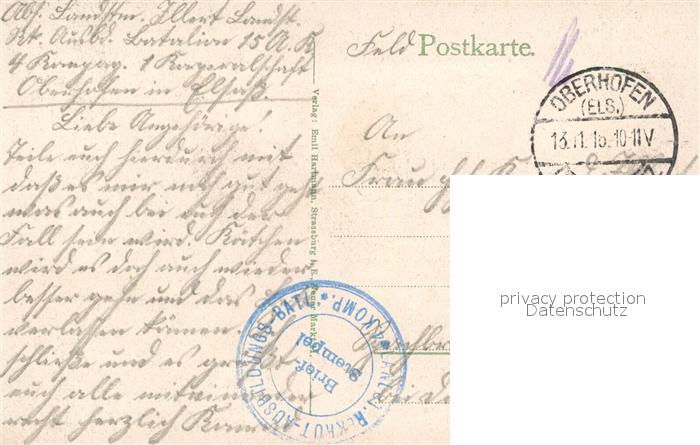 Abs. Landstm. Illert Landst.
Rk. Ausbd. Batalion 15 A. K
4 Kompag. 1 Korporalschaft
Oberhofen in Elsaß.
Liebe Angehörige!
Teile euch hierdurch mit
daß es mir noch gut geht
was auch bei euch der
Fall sein wird. Kätchen
wird es doch auch wieder
besser gehn und das
verlassen können.
schließe und es grüßt
euch alle miteinander
recht herzlich
Verlag: Emil Hartmann, Strassburg i. E., Neuer Markt
Feld Postkarte.
OBERHOFEN
(ELS.)
13.11.16.10-11V
An
Frau
LANDST. REKRUT-AUSBILDUNGS-BATL. * 4. KOMP. *
Brief-
Stempel
privacy protection
Datenschutz